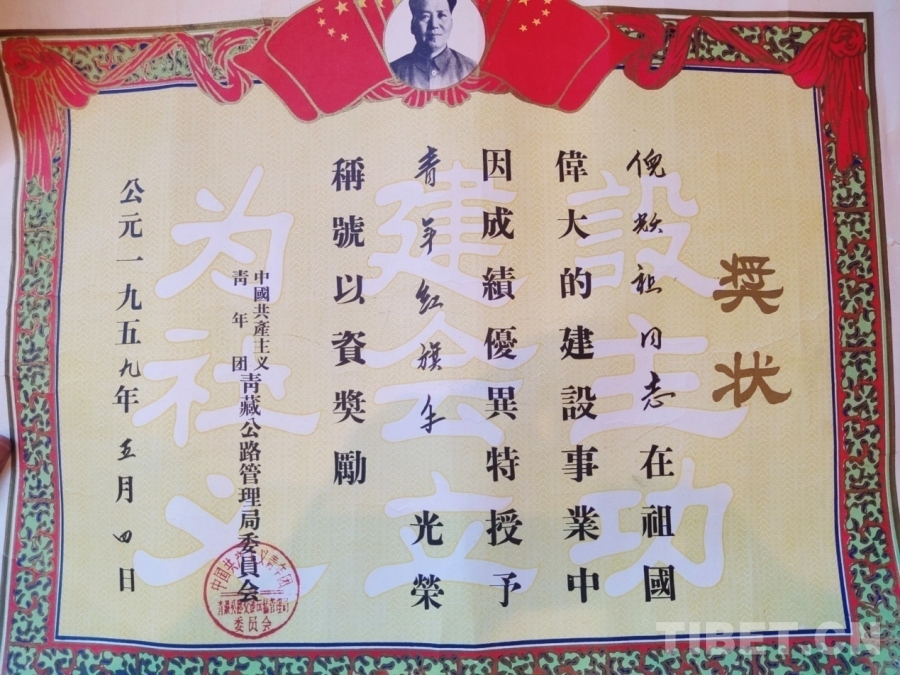 奖状
倪祖同志在祖國
偉大的建設事業中
因成績優異特授予
青年红旗手光榮
稱號以資奬勵
中國共產主义
青年团
青藏公路管理局委員会
公元一九五九年五月四日
为建設
社会主
义立功
中国共产主义青年团
委员会
TIBET.CN